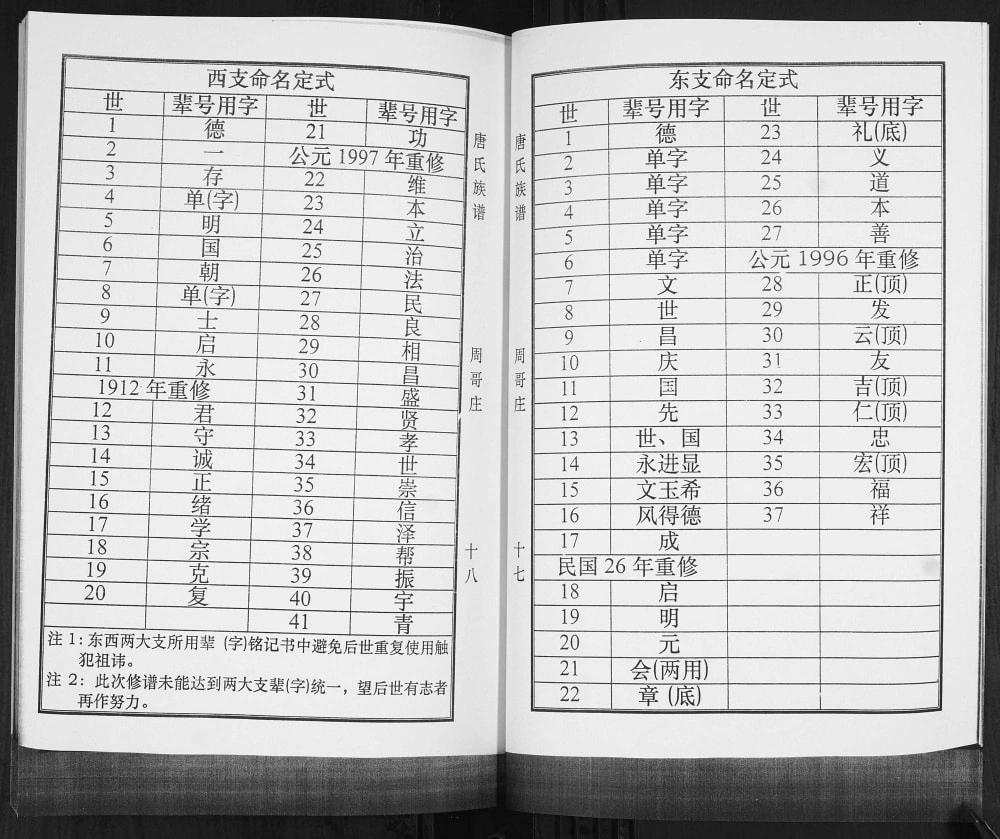 西支命名定式
世 辈号用字 世 辈号用字
1 德 21 功
2 一 公元1997年重修
3 存 22 维
4 单(字) 23 本
5 明 24 立
6 国 25 治
7 朝 26 法
8 单(字) 27 民
9 士 28 良
10 启 29 相
11 永 30 昌
1912年重修 31 盛
12 君 32 贤
13 守 33 孝
14 诚 34 世
15 正 35 崇
16 绪 36 信
17 学 37 泽
18 宗 38 帮
19 克 39 振
20 复 40 宇
41 青
注1:东西两大支所用辈(字)铭记书中避免后世重复使用触
犯祖讳。
注2:此次修谱未能达到两大支辈(字)统一,望后世有志者
再作努力。
唐氏族谱
周哥庄
十八
唐氏族谱
周哥庄
十七
东支命名定式
世 辈号用字 世 辈号用字
1 德 23 礼(底)
2 单字 24 义
3 单字 25 道
4 单字 26 本
5 单字 27 善
6 单字 公元1996年重修
7 文 28 正(顶)
8 世 29 发
9 昌 30 云(顶)
10 庆 31 友
11 国 32 吉(顶)
12 先 33 仁(顶)
13 世、国 34 忠
14 永进显 35 宏(顶)
15 文玉希 36 福
16 风得德 37 祥
17 成
民国26年重修
18 启
19 明
20 元
21 会(两用)
22 章(底)